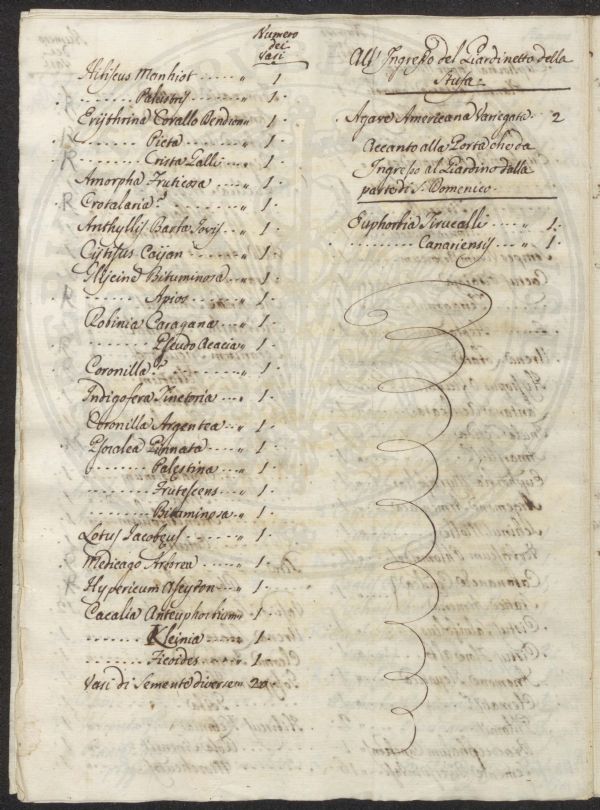 Numero
dei
Vasi
Hibiscus Manhiot ...... „ 1
......... Palustris ...... „ 1.
Erijthrina Corallo Dendron „ 1.
......... Picta ......... „ 1.
R ......... Crista Galli .... „ 1.
Amorpha Fruticosa .... „ 1.
R Crotalaria ?. ......... „ 1.
Anthyllis Barba Jovis .. „ 1.
Cijtisus Caijan ......... „ 1.
Glijcine Bituminosa .... „ 1.
R ......... Apios ......... „ 1.
Robinia Caragana ...... „ 1.
......... Pseudo Acacia „ 1.
Coronilla ?. ............ „ 1.
Indigofera Tinctoria .... „ 1.
Coronilla Argentea .... „ 1.
Psoralea Pinnata ...... „ 1.
......... Palestina ...... „ 1.
......... Frutescens .... „ 1.
......... Bituminosa .. „ 1.
Lotus Jacobeus ......... „ 1.
Medicago Arborea .... „ 1.
R Hypericum Aseyron .. „ 1.
Cacalia Anteuphorbium „ 1.
......... Kleinia ......... „ 1.
......... Ficoides ...... „ 1.
Vasi di Semente diverse „ 20
All' Ingresso del Giardinetto della
Stufa.
Agave Americana Variegata. 2
Accanto alla Porta che da
Ingresso al Giardino dalla
parte di S. Domenico.
Euphorbia Tirucalli ...... „ 1.
......... Canariensis .... „ 1.